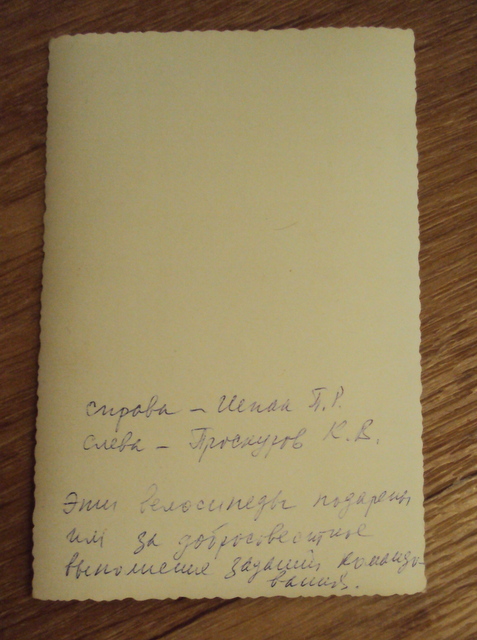 справа – Цепак П.Р.
слева – Проскуров К.В.
Эти велосипеды подарены
им за добросовестное
выполнение заданий командо-
вания.